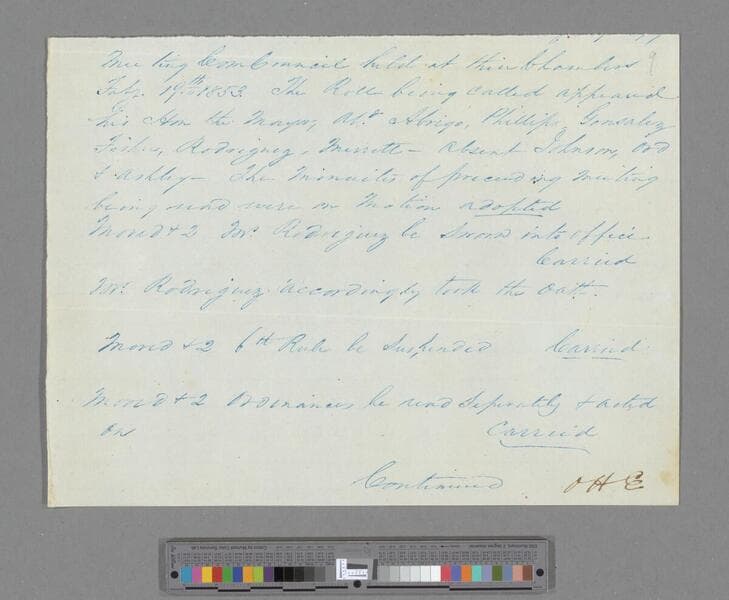 Meeting Com Council held at their Chambers
July 19th 1853. The Roll being called appeared
his Hon the Mayor, Ald Abrigo, Phillip, Gonzalez
Fisher, Rodriguez, Merrett - absent Johnson, Ord
& Ashley - The Minuites of preceeding meeting
being read were on Motion adopted
Moved & 2 Mr. Rodriguez be Sworn into office
Carried
Mr. Rodriguez accordingly took the oath.
Moved & 2 6th Rule be Suspended Carried
Moved & 2 Ordinances be read Seperately & acted
on Carried
Continued O H E
9